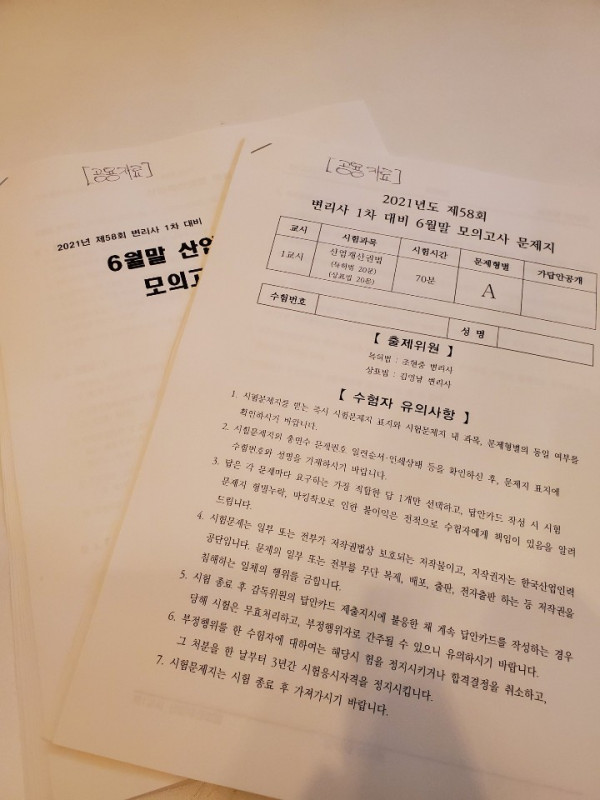 [공용자료]
2021년 제58회 변리사 1차 대비
6월말 산업
모의고
[공용자료]
2021년도 제58회
변리사 1차 대비 6월말 모의고사 문제지
교시 시험과목 시험시간 문제형별 가답안공개
1교시 산업재산권법 70분 A
(특허법 20문)
(상표법 20문)
수험번호 성 명
【 출제위원 】
특허법 : 조현중 변리사
상표법 : 김영남 변리사
【 수험자 유의사항 】
1. 시험문제지를 받는 즉시 시험문제지 표지와 시험문제지 내 과목, 문제형별의 동일 여부를
확인하시기 바랍니다.
2. 시험문제지의 총면수 문제번호 일련순서·인쇄상태 등을 확인하신 후, 문제지 표지에
수험번호와 성명을 기재하시기 바랍니다.
3. 답은 각 문제마다 요구하는 가장 적합한 답 1개만 선택하고, 답안카드 작성 시 시험
문제지 형별누락, 마킹착오로 인한 불이익은 전적으로 수험자에게 책임이 있음을 알려
드립니다.
4. 시험문제는 일부 또는 전부가 저작권법상 보호되는 저작물이고, 저작권자는 한국산업인력
공단입니다. 문제의 일부 또는 전부를 무단 복제, 배포, 출판, 전자출판 하는 등 저작권을
침해하는 일체의 행위를 금합니다.
5. 시험 종료 후 감독위원의 답안카드 제출지시에 불응한 채 계속 답안카드를 작성하는 경우
당해 시험은 무효처리하고, 부정행위자로 간주될 수 있으니 유의하시기 바랍니다.
6. 부정행위를 한 수험자에 대하여는 해당시 험을 정지시키거나 합격결정을 취소하고,
그 처분을 한 날부터 3년간 시험응시자격을 정지시킵니다.
7. 시험문제지는 시험 종료 후 가져가시기 바랍니다.